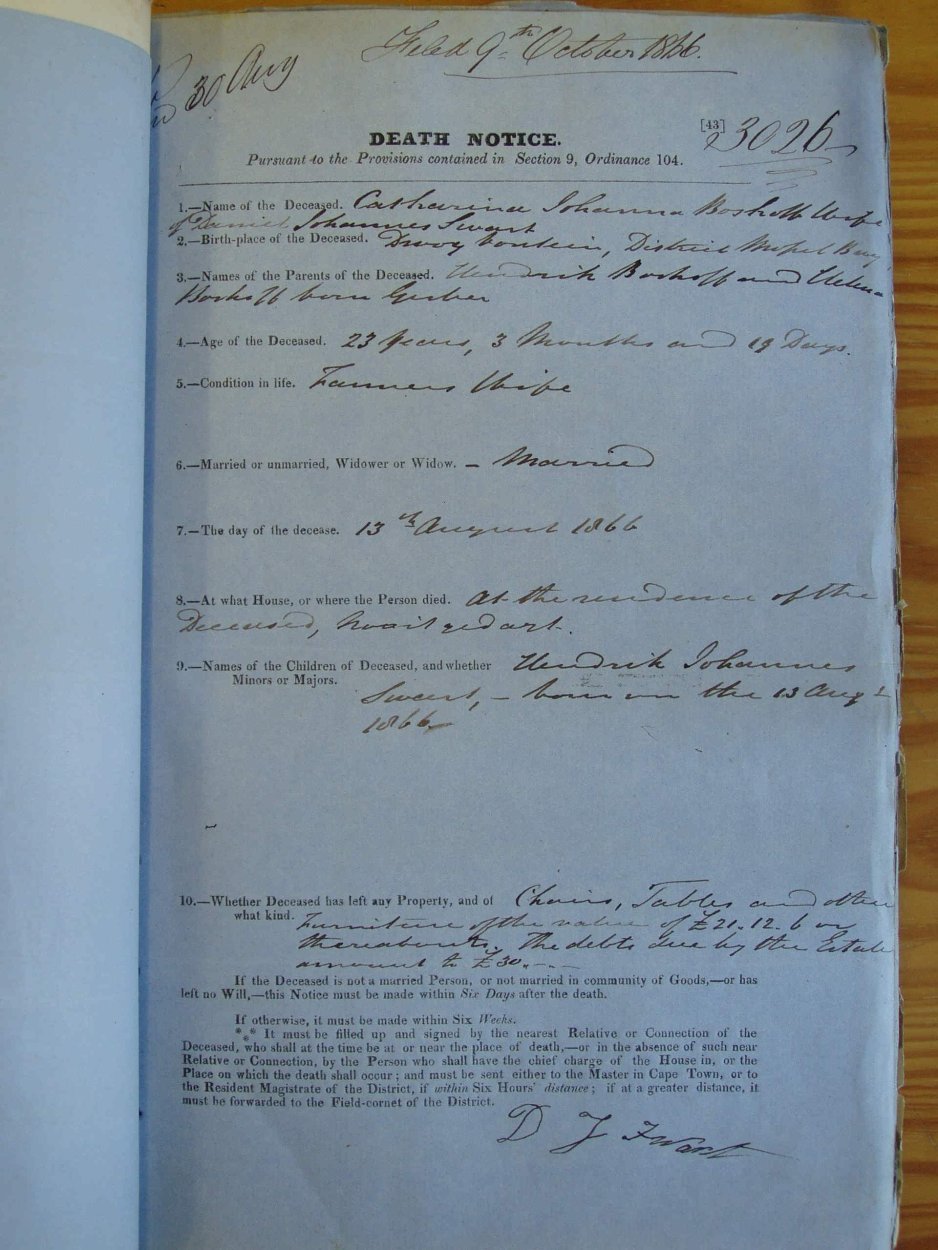 30 Aug
Filed 9th October 1866.
[43]
3026
DEATH NOTICE.
Pursuant to the Provisions contained in Section 9, Ordinance 104.
1.—Name of the Deceased. Catharina Johanna Boshoff Wife
of Daniel Johannes Swart
2.—Birth-place of the Deceased. District Mossel Bay
3.—Names of the Parents of the Deceased. Hendrik Boshoff and Helena
Boshoff born Gerber
4.—Age of the Deceased. 23 Years, 3 Months and 19 Days.
5.—Condition in life. Farmers Wife
6.—Married or unmarried, Widower or Widow. – Married
7.—The day of the decease. 13th August 1866
8.—At what House, or where the Person died. At the residence of the
Deceased,
9.—Names of the Children of Deceased, and whether Hendrik Johannes
Minors or Majors.
Swart, – born on the 13 Augt
1866
10.—Whether Deceased has left any Property, and of Chairs, Tables and other
what kind. Furniture of the value of £21.12.6 or
thereabouts. The debts due by the Estate
amount to £30.---
If the Deceased is not a married Person, or not married in community of Goods,—or has
left no Will,—this Notice must be made within Six Days after the death.
If otherwise, it must be made within Six Weeks.
*** It must be filled up and signed by the nearest Relative or Connection of the
Deceased, who shall at the time be at or near the place of death,—or in the absence of such near
Relative or Connection, by the Person who shall have the chief charge of the House in, or the
Place on which the death shall occur; and must be sent either to the Master in Cape Town, or to
the Resident Magistrate of the District, if within Six Hours' distance; if at a greater distance, it
must be forwarded to the Field-cornet of the District.
D J Swart